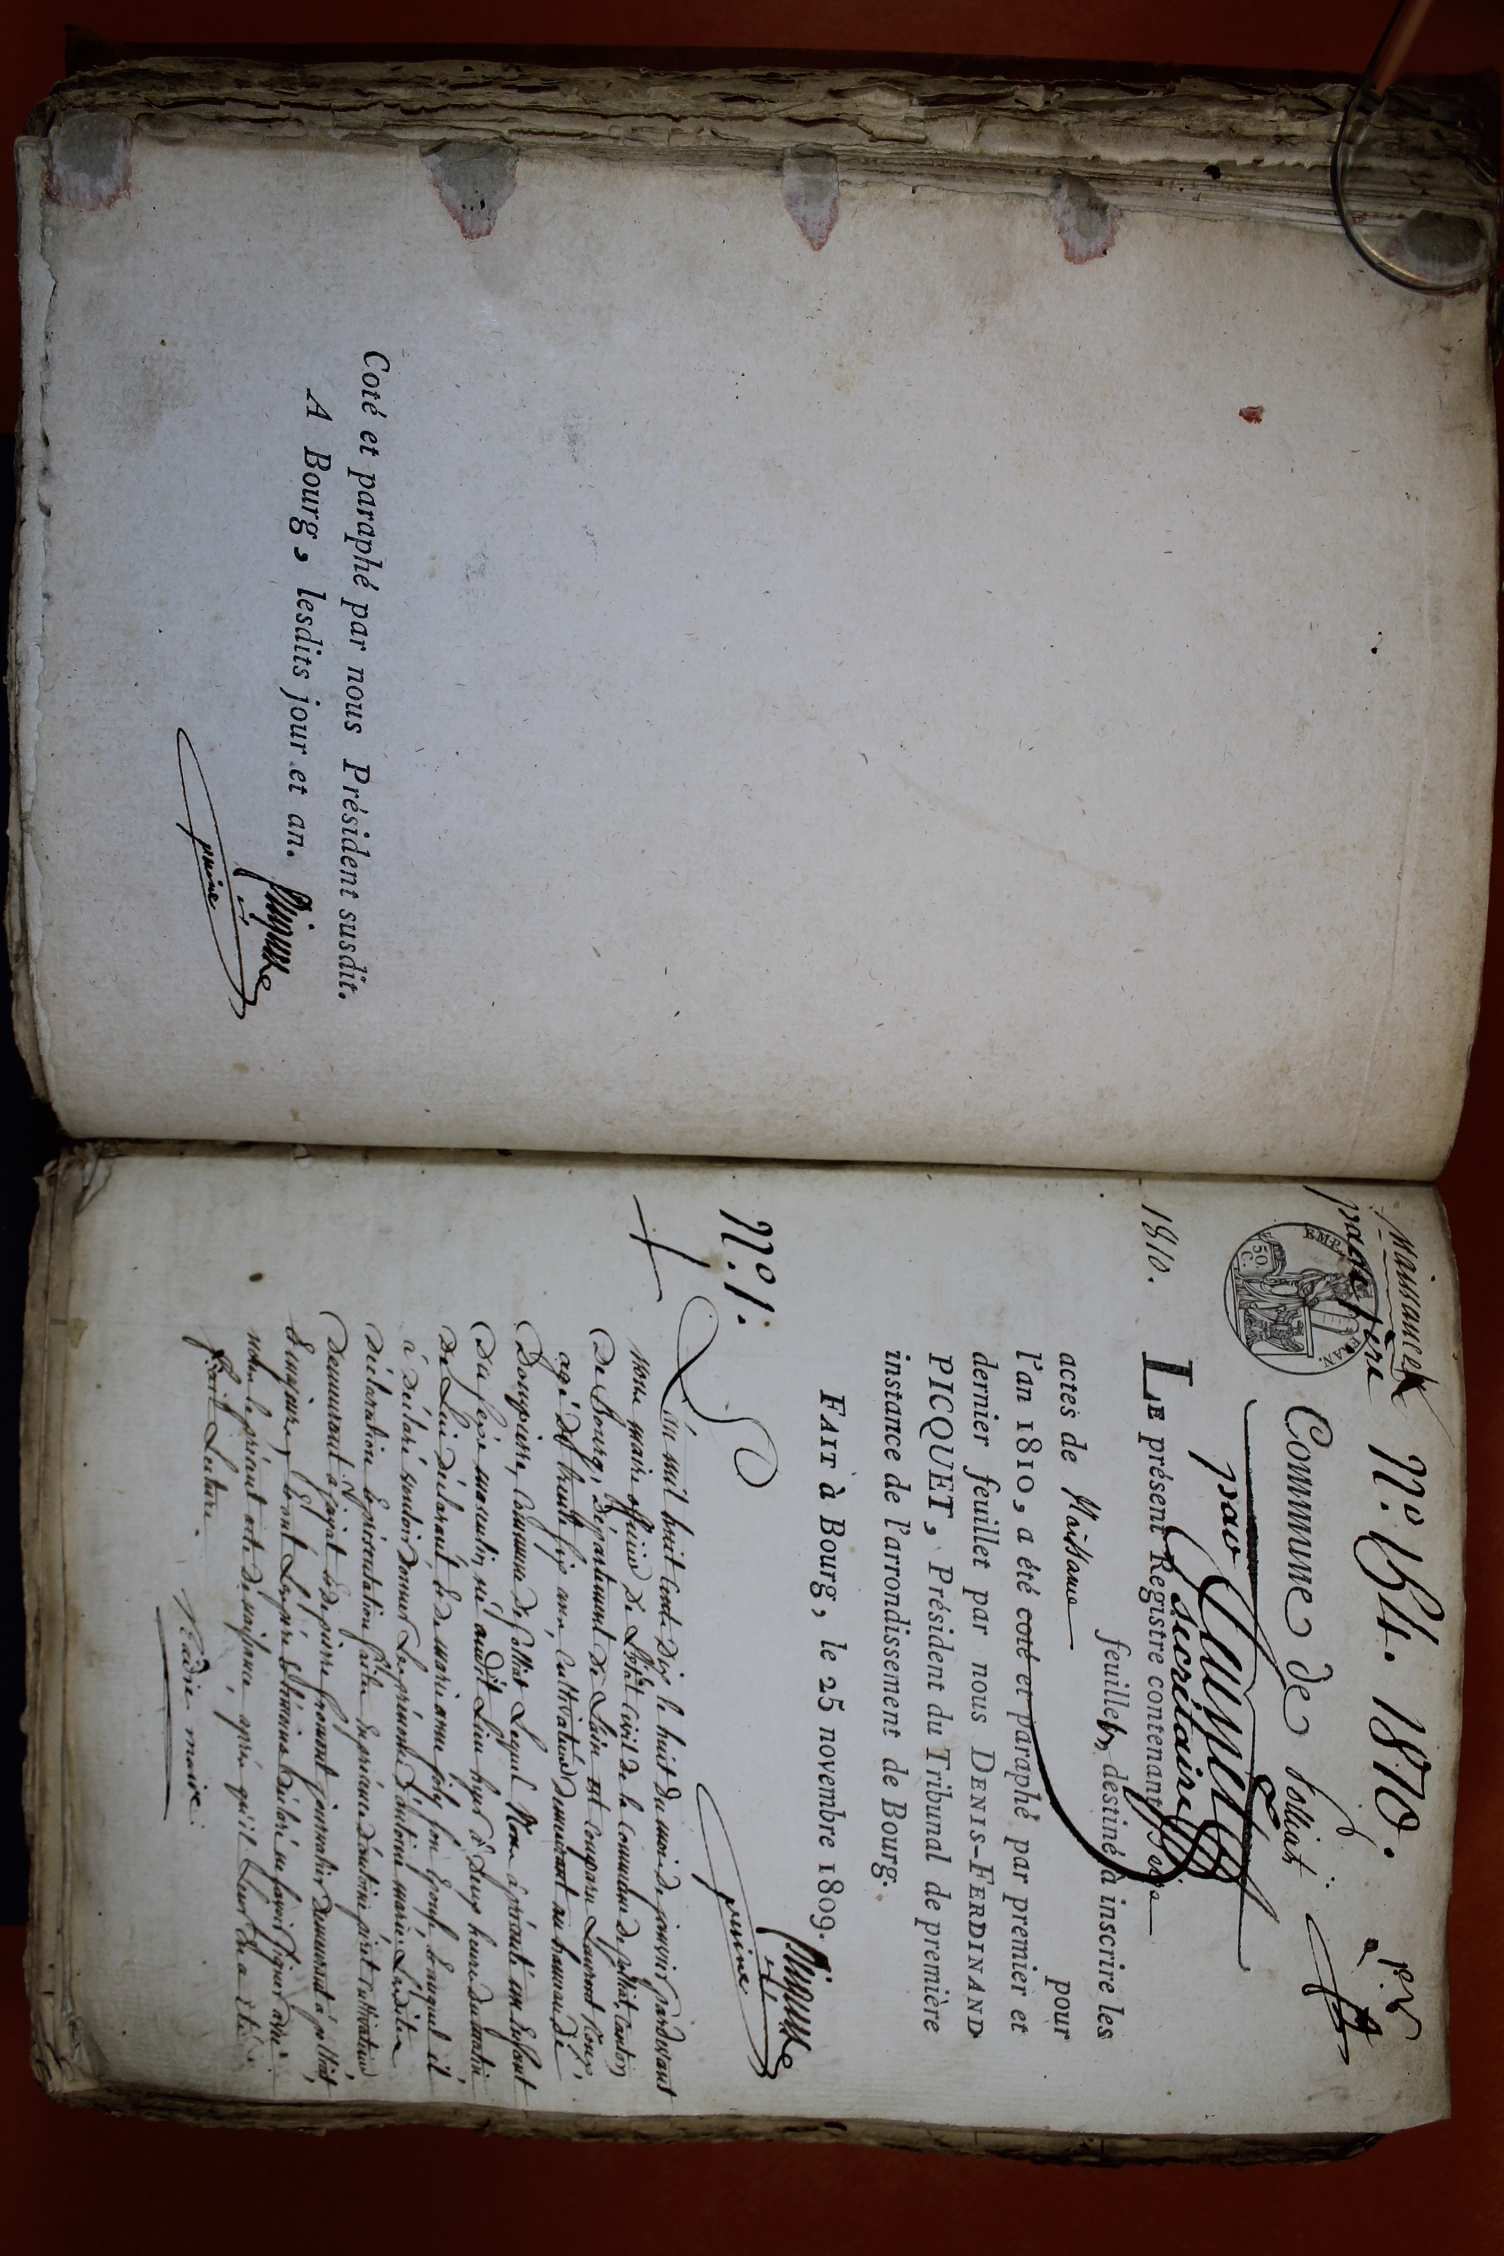 Coté et paraphé par nous Président susdit.
A Bourg, lesdits jour et an.
Picquet
naissances
N.º 184. 1810.
1er
Commune de polliat
EMP. FRAN.
50. C.
par
secrétaire
1810.
LE présent Registre contenant
feuillets, destiné à inscrire les
actes de Naissance pour
l'an 1810, a été coté et paraphé par premier et
dernier feuillet par nous DENIS-FERDINAND
PICQUET, Président du Tribunal de première
instance de l'arrondissement de Bourg.
FAIT à Bourg, le 25 novembre 1809.
Picquet
N.º 1.
L'an mil huit cent dix le huit du mois de janvier pardevant
nous maire officier de l'état civil de la Commune de polliat, Canton
De Bourg, Département de l'ain est comparu Laurent
agé de trente six ans, cultivateur demeurant au hameau de
Dompierre, Commune de polliat Lequel Nous a présenté un Enfant
Du sexe masculin, né audit Lieu hyer à deux heures du matin
De Lui déclarant, & de marie anne joly son Epouse, & auquel il
à déclaré vouloir donner Les prénoms d'antoine marie. Lesdites
déclaration & présentation faites En présence d'antoine cultivateur
Demeurant à & de pierre journalier demeurant à polliat
& majeurs, & ont Le père & témoins déclaré ne savoir signer avec
nous le présent acte de naissance, après qu'il Leur En a été
fait Lecture.
maire.